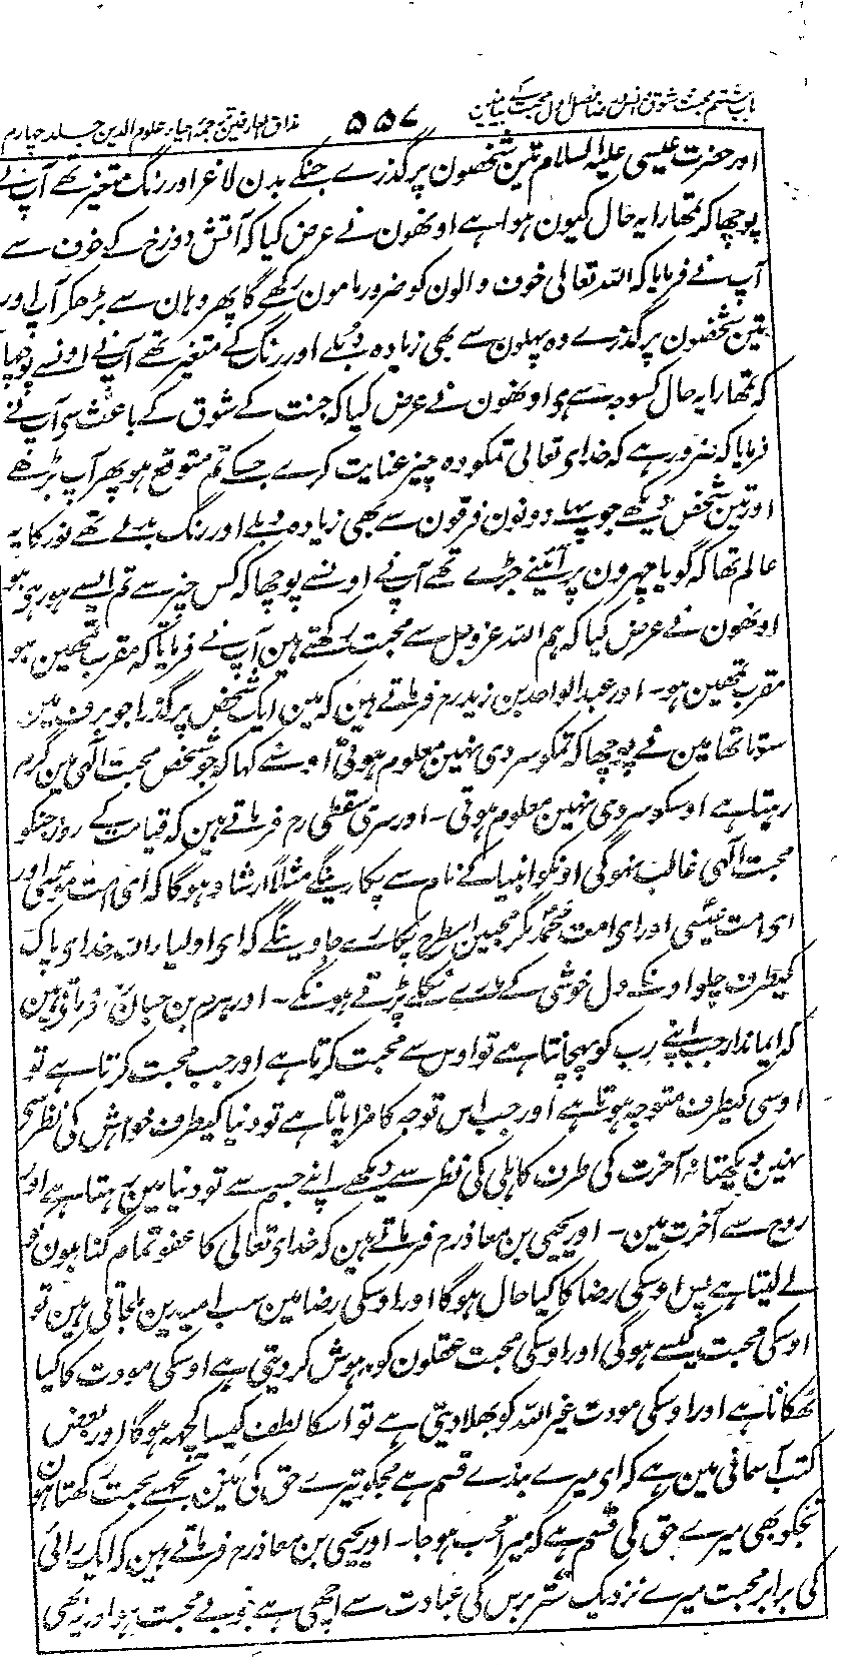 باب ششم محبت شوق انس رضا فصل اول محبت کے بیان مین
۵۵۷
مذاق العارفین ترجمۂ احیاء علوم الدین جلد چہارم
اور حضرت عیسی علیہ السلام تین شخصون پر گذرے جنکے بدن لاغر اور رنگ متغیر تھے آپ نے
پوچھا کہ تمھارا یہ حال کیون ہوا ہے اونھون نے عرض کیا کہ آتش دوزخ کے خوف سے
آپ نے فرمایا کہ اللہ تعالی خوف والون کو ضرور مامون رکھے گا پھر وہان سے بڑھکر آپ اور
تین شخصون پر گذرے وہ پہلون سے بھی زیادہ دُبلے اور رنگ کے متغیر تھے آپ نے اونسے پوچھا
کہ تمھارا یہ حال کسوجہ سے ہی اونھون نے عرض کیا کہ جنت کے شوق کے باعث سی آپ نے
فرمایا کہ ضرور ہے کہ خدای تعالی تمکو وہ چیز عنایت کرے جسکے تم متوقع ہو پھر آپ بڑھے
اور تین شخص دیکھے جو پہلے دونون فرقون سے بھی زیادہ دبلے اور رنگ بدلے تھے نور کا یہ
عالم تھا کہ گویا چہرون پر آئینے جڑے تھے آپ نے اونسے پوچھا کہ کس چیز سے تم ایسے ہو رہی ہو
اونھون نے عرض کیا کہ ہم اللہ عزوجل سے محبت رکھتے ہین آپ نے فرمایا کہ مقرب تمھین ہو
مقرب تمھین ہو۔ اور عبدالواحد بن زید رح فرماتے ہین کہ مین ایک شخص پر گذرا جو برف مین
سوتا تھا مین نے پوچھا کہ تمکو سردی نہین معلوم ہوتی اوسنے کہا کہ جو شخص محبت الٰہی مین گرم
رہتا ہے اوسکو سردی نہین معلوم ہوتی۔ اور سری سقطی رح فرماتے ہین کہ قیامت کے روز جنکو
محبت الٰہی غالب نہوگی اونکو انبیا کے نام سے پکارینگے مثلاً ارشاد ہوگا کہ ای امت موسٰی اور
ای امت عیسٰی اور ای امت محمد مگر محبین اسطرح پکارے جاوینگے کہ ای اولیاء اللہ خدای پاک
کیطرف چلو اونکے دل خوشی کے مارے نکلے پڑتے ہونگے۔ اور ہرم بن حبان فرماتے ہین
کہ ایماندار جب اپنے رب کو پہچانتا ہے تو اوس سے محبت کرتا ہے اور جب محبت کرتا ہے تو
اوسی کیطرف متوجہ ہوتا ہے اور جب اس توجہ کا مزا پاتا ہے تو دنیا کیطرف خواہش کی نظر سے
نہین دیکھتا نہ آخرت کی طرف کاہلی کی نظر سے دیکھے اپنے جسم سے تو دنیا مین رہتا ہے اور
روح سے آخرت مین۔ اور یحیی بن معاذ رح فرماتے ہین کہ خدای تعالی کا عفو تمام گناہون کو
لے لیتا ہے پس اوسکی رضا کا کیا حال ہوگا اور اوسکی رضا مین سب امیدین ملجاتی ہین تو
اوسکی محبت کیسے ہوگی اور اوسکی محبت عقلون کو مدہوش کردیتی ہے اوسکی مودت کا کیا
ٹھکانا ہے اور اوسکی مودت غیر اللہ کو بھلا دیتی ہے تو اسکا لطف کیسا کچھ ہوگا اور بعض
کتب آسمانی مین ہے کہ ای میرے بندے قسم ہے مجکو تیرے حق کی مین تجھسے محبت رکھتا ہون
تجکو بھی میرے حق کی قسم ہے کہ میرا محب ہوجا۔ اور یحیی بن معاذ رح فرماتے ہین کہ ایک رائی
کی برابر محبت میرے نزدیک ستر برس کی عبادت سے اچھی ہے جو بے محبت ہو اور یہ بھی